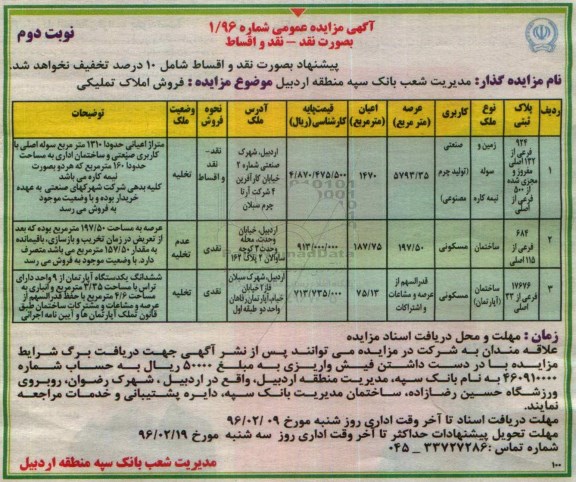 آگهی مزایده عمومی شماره ۱/۹۶
بصورت نقد – نقد و اقساط
نوبت دوم
پیشنهاد بصورت نقد و اقساط شامل ۱۰ درصد تخفیف نخواهد شد.
نام مزایده گذار: مدیریت شعب بانک سپه منطقه اردبیل موضوع مزایده : فروش املاک تملیکی
ردیف
پلاک ثبتی
نوع ملک
کاربری
عرصه (متر مربع)
اعیان (مترمربع)
قیمت‌پایه کارشناسی(ریال)
آدرس ملک
نحوه فروش
وضعیت ملک
توضیحات
۱
۹۲۴ فرعی از ۱۳۲ اصلی مفروز و مجزی شده از ۵۰۰ فرعی از اصلی
زمین و سوله نیمه کاره
صنعتی (تولید چرم مصنوعی)
۵۷۹۳/۳۵
۱۴۷۰
۴/۸۷۰/۴۷۵/۵۰۰
اردبیل، شهرک صنعتی شماره ۲ خیابان کارآفرین ۴ شرکت آرتا چرم سبلان
نقد- نقد و اقساط
تخلیه
متراژ اعیانی حدودا ۱۳۱۰ متر مربع سوله اصلی با
کاربری صنعتی و ساختمان اداری به مساحت
حدودا ۱۶۰ مترمربع که هر دو بصورت
نیمه کاره می باشد
کلیه بدهی شرکت شهرکهای صنعتی به عهده
خریدار بوده و با وضعیت موجود
به فروش می رسد
۲
۶۸۴ فرعی از ۱۱۵ اصلی
ساختمان
مسکونی
۱۹۷/۵۰
۱۸۷/۷۵
۹۱۳/۰۰۰/۰۰۰
اردبیل، خیابان وحدت، محله وحدت ۲ کوچه ساوالان ۲ پلاک ۱۶۳
نقدی
عدم تخلیه
عرصه به مساحت ۱۹۷/۵۰ مترمربع بوده که بعد
از تعریض در زمان تخریب و بازسازی، باقیمانده
به مقدار ۱۵۷/۵۰ مترمربع می باشد متصرف
دارد. با وضعیت موجود به فروش می رسد
۳
۱۷۶۷۶ فرعی از ۳۳ اصلی
ساختمان (آپارتمان)
مسکونی
قدرالسهم از عرصه و مشاعات و اشتراکات
۷۵/۱۳
۷۱۳/۷۳۵/۰۰۰
اردبیل، شهرک سبلان فاز ۲ خیابان آپارتمان رفاهان واحد دو طبقه اول
نقدی
تخلیه
ششدانگ یکدستگاه آپارتمان از ۹ واحد دارای
تراس با مساحت ۳/۳۵ مترمربع و انباری به
مساحت ۴/۶ مترمربع با حفظ قدرالسهم از
عرصه و مشاعات و مشترکات ساختمان طبق
قانون تملک آپارتمان ها و آیین نامه اجرائی
زمان : مهلت و محل دریافت اسناد مزایده
علاقه مندان به شرکت در مزایده می توانند پس از نشر آگهی جهت دریافت برگ شرایط
مزایده با در دست داشتن فیش واریزی به مبلغ ۵۰۰۰۰ ریال به حساب شماره
۴۶۰۹۱۰۰۰۰ به نام بانک سپه، مدیریت منطقه اردبیل، واقع در اردبیل ، شهرک رضوان، روبروی
ورزشگاه حسین رضازاده، ساختمان مدیریت بانک سپه، دایره پشتیبانی و خدمات مراجعه
نمایند.
مهلت دریافت اسناد تا آخر وقت اداری روز شنبه مورخ ۹۶/۰۲/۰۹
مهلت تحویل پیشنهادات حداکثر تا آخر وقت اداری روز سه شنبه مورخ ۹۶/۰۲/۱۹
شماره تماس :۳۳۷۲۷۲۸۶ _ ۰۴۵
مدیریت شعب بانک سپه منطقه اردبیل
۱۰۰